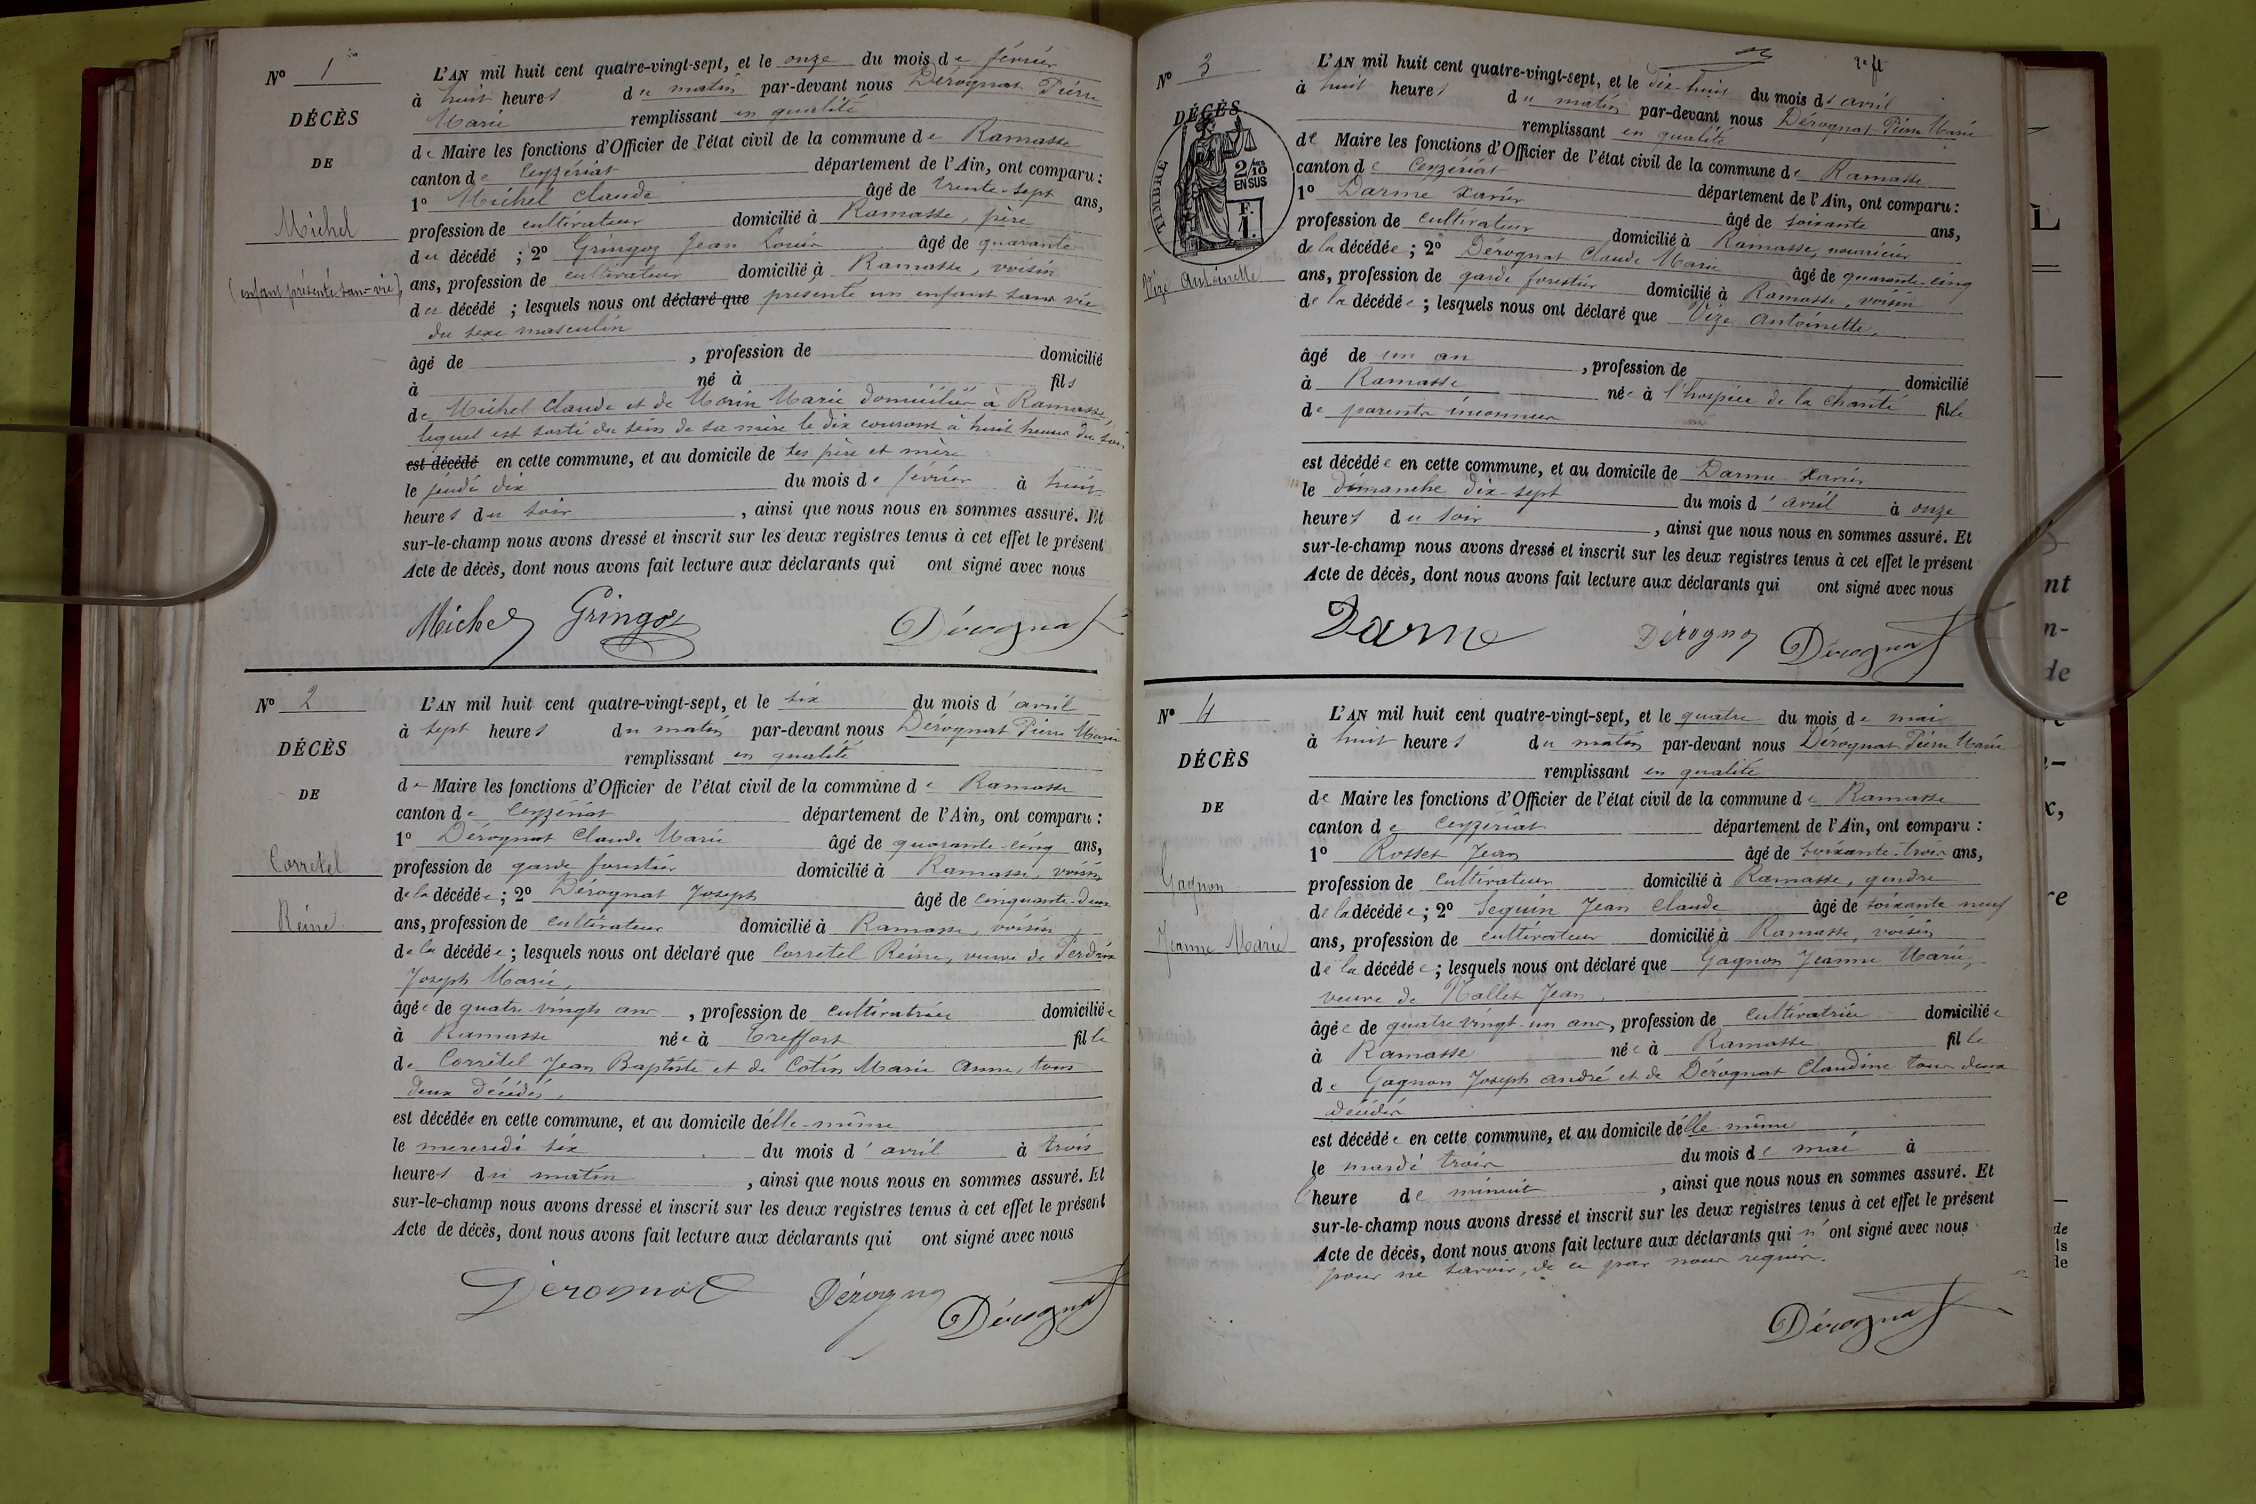 Nº 1
DÉCÈS
DE
Michel
(enfant présenté sans vie)
L'AN mil huit cent quatre-vingt-sept, et le onze du mois de février
à huit heures du matin par-devant nous Dérognat Pierre
Marie remplissant en qualité
de Maire les fonctions d'Officier de l'état civil de la commune de Ramasse
canton de Ceyzériat département de l'Ain, ont comparu :
1º Michel Claude âgé de trente-sept ans,
profession de cultivateur domicilié à Ramasse, père
du décédé ; 2º Gringoz Jean Louis âgé de quarante
ans, profession de cultivateur domicilié à Ramasse, voisin
du décédé ; lesquels nous ont déclaré que présenté un enfant sans vie
du sexe masculin
âgé de , profession de domicilié
à né à fils
de Michel Claude et de Morin Marie domiciliés à Ramasse,
lequel est sorti du sein de sa mère le dix courant à huit heures du soir
est décédé en cette commune, et au domicile de ses père et mère
le jeudi dix du mois de février à huit
heures du soir , ainsi que nous nous en sommes assuré. Et
sur-le-champ nous avons dressé et inscrit sur les deux registres tenus à cet effet le présent
Acte de décès, dont nous avons fait lecture aux déclarants qui ont signé avec nous
Michel Gringoz Dérognat
Nº 2
DÉCÈS
DE
Corretel
Reine
L'AN mil huit cent quatre-vingt-sept, et le six du mois d'avril
à sept heures du matin par-devant nous Dérognat Pierre Marie
remplissant en qualité
de Maire les fonctions d'Officier de l'état civil de la commune de Ramasse
canton de Ceyzériat département de l'Ain, ont comparu :
1º Dérognat Claude Marie âgé de quarante-cinq ans,
profession de garde forestier domicilié à Ramasse, voisin
de la décédée ; 2º Dérognat Joseph âgé de cinquante-deux
ans, profession de cultivateur domicilié à Ramasse, voisin
de la décédée ; lesquels nous ont déclaré que Corretel Reine, veuve de Perdrix
Joseph Marie,
âgée de quatre vingts ans , profession de cultivatrice domiciliée
à Ramasse née à Treffort fille
de Corretel Jean Baptiste et de Cotin Marie Anne, tous
deux décédés,
est décédée en cette commune, et au domicile d'elle-même
le mercredi six du mois d'avril à trois
heures du matin , ainsi que nous nous en sommes assuré. Et
sur-le-champ nous avons dressé et inscrit sur les deux registres tenus à cet effet le présent
Acte de décès, dont nous avons fait lecture aux déclarants qui ont signé avec nous
Dérognat Dérognat Dérognat
Nº 3
DÉCÈS
TIMBRE
2/10
EN SUS
F.
1.
Vize Antoinette
L'AN mil huit cent quatre-vingt-sept, et le dix-huit du mois d'avril
à huit heures du matin par-devant nous Dérognat Pierre Marie
remplissant en qualité
de Maire les fonctions d'Officier de l'état civil de la commune de Ramasse
canton de Ceyzériat département de l'Ain, ont comparu :
1º Darme Xavier âgé de soixante ans,
profession de cultivateur domicilié à Ramasse, nourricier
de la décédée ; 2º Dérognat Claude Marie âgé de quarante-cinq
ans, profession de garde forestier domicilié à Ramasse, voisin
de la décédée ; lesquels nous ont déclaré que Vize Antoinette,
âgé de un an , profession de domicilié
à Ramasse née à l'hospice de la charité fille
de parents inconnus
est décédée en cette commune, et au domicile de Darme Xavier
le dimanche dix-sept du mois d'avril à onze
heures du soir , ainsi que nous nous en sommes assuré. Et
sur-le-champ nous avons dressé et inscrit sur les deux registres tenus à cet effet le présent
Acte de décès, dont nous avons fait lecture aux déclarants qui ont signé avec nous
Darme Dérognat Dérognat
Nº 4
DÉCÈS
DE
Gagnon
Jeanne Marie
L'AN mil huit cent quatre-vingt-sept, et le quatre du mois de mai
à huit heures du matin par-devant nous Dérognat Pierre Marie
remplissant en qualité
de Maire les fonctions d'Officier de l'état civil de la commune de Ramasse
canton de Ceyzériat département de l'Ain, ont comparu :
1º Rosset Jean âgé de soixante-trois ans,
profession de cultivateur domicilié à Ramasse, gendre
de la décédée ; 2º Seguin Jean Claude âgé de soixante neuf
ans, profession de cultivateur domicilié à Ramasse, voisin
de la décédée ; lesquels nous ont déclaré que Gagnon Jeanne Marie,
veuve de Nallet Jean,
âgée de quatre vingt-un ans, profession de cultivatrice domiciliée
à Ramasse née à Ramasse fille
de Gagnon Joseph André et de Dérognat Claudine tous deux
décédés
est décédée en cette commune, et au domicile d'elle-même
le mardi trois du mois de mai à
l'heure de minuit , ainsi que nous nous en sommes assuré. Et
sur-le-champ nous avons dressé et inscrit sur les deux registres tenus à cet effet le présent
Acte de décès, dont nous avons fait lecture aux déclarants qui n'ont signé avec nous
pour ne savoir, de ce par nous requis.
Dérognat